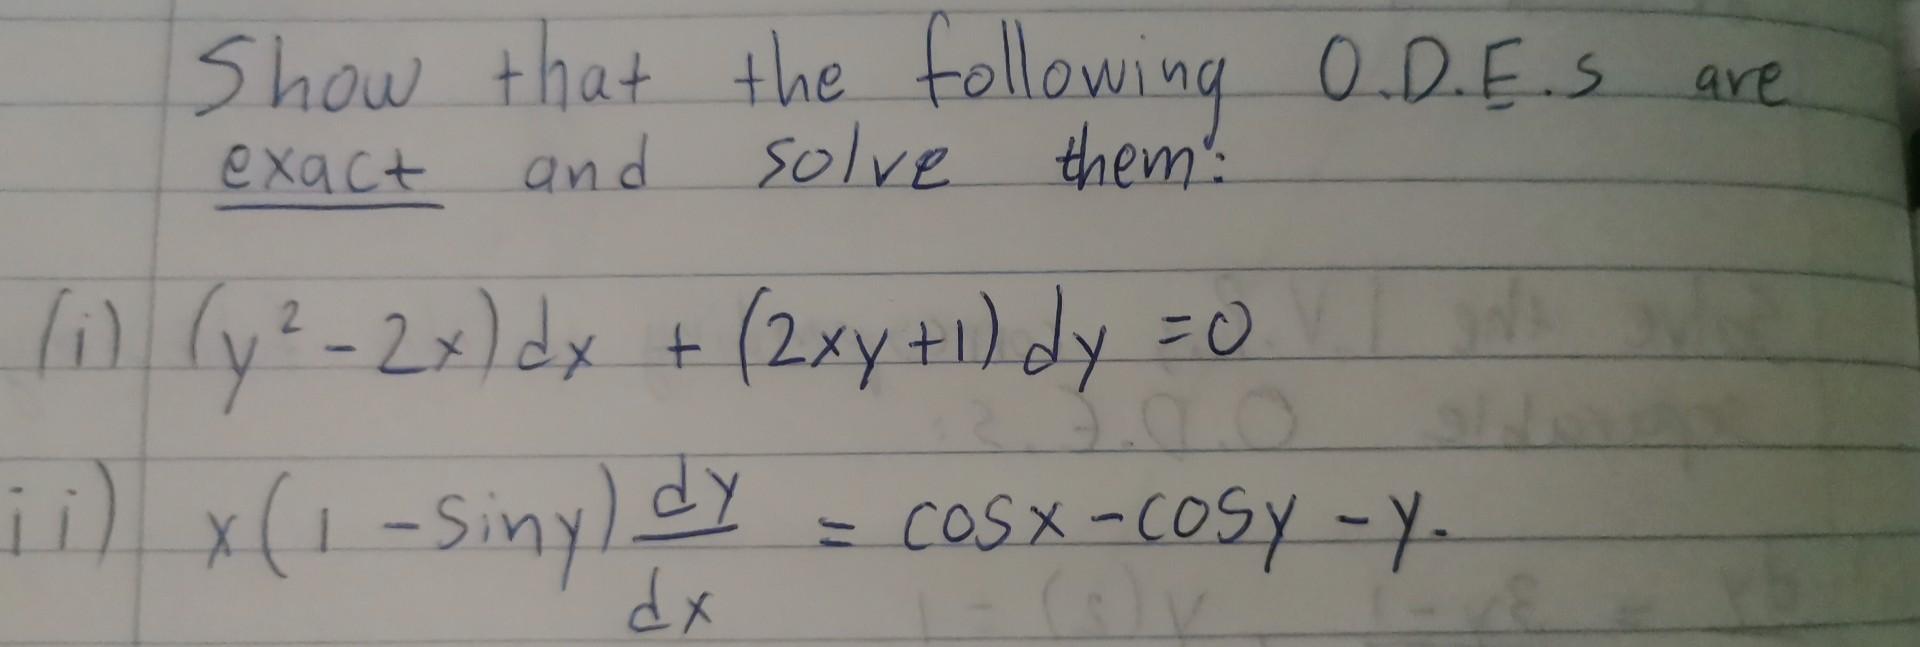 Show that the following O.D.E.s are
exact and solve them:
(i) (y² - 2x)dx + (2xy+1)dy = 0
ii) x(1 - siny) dy/dx = cosx - cosy - y.